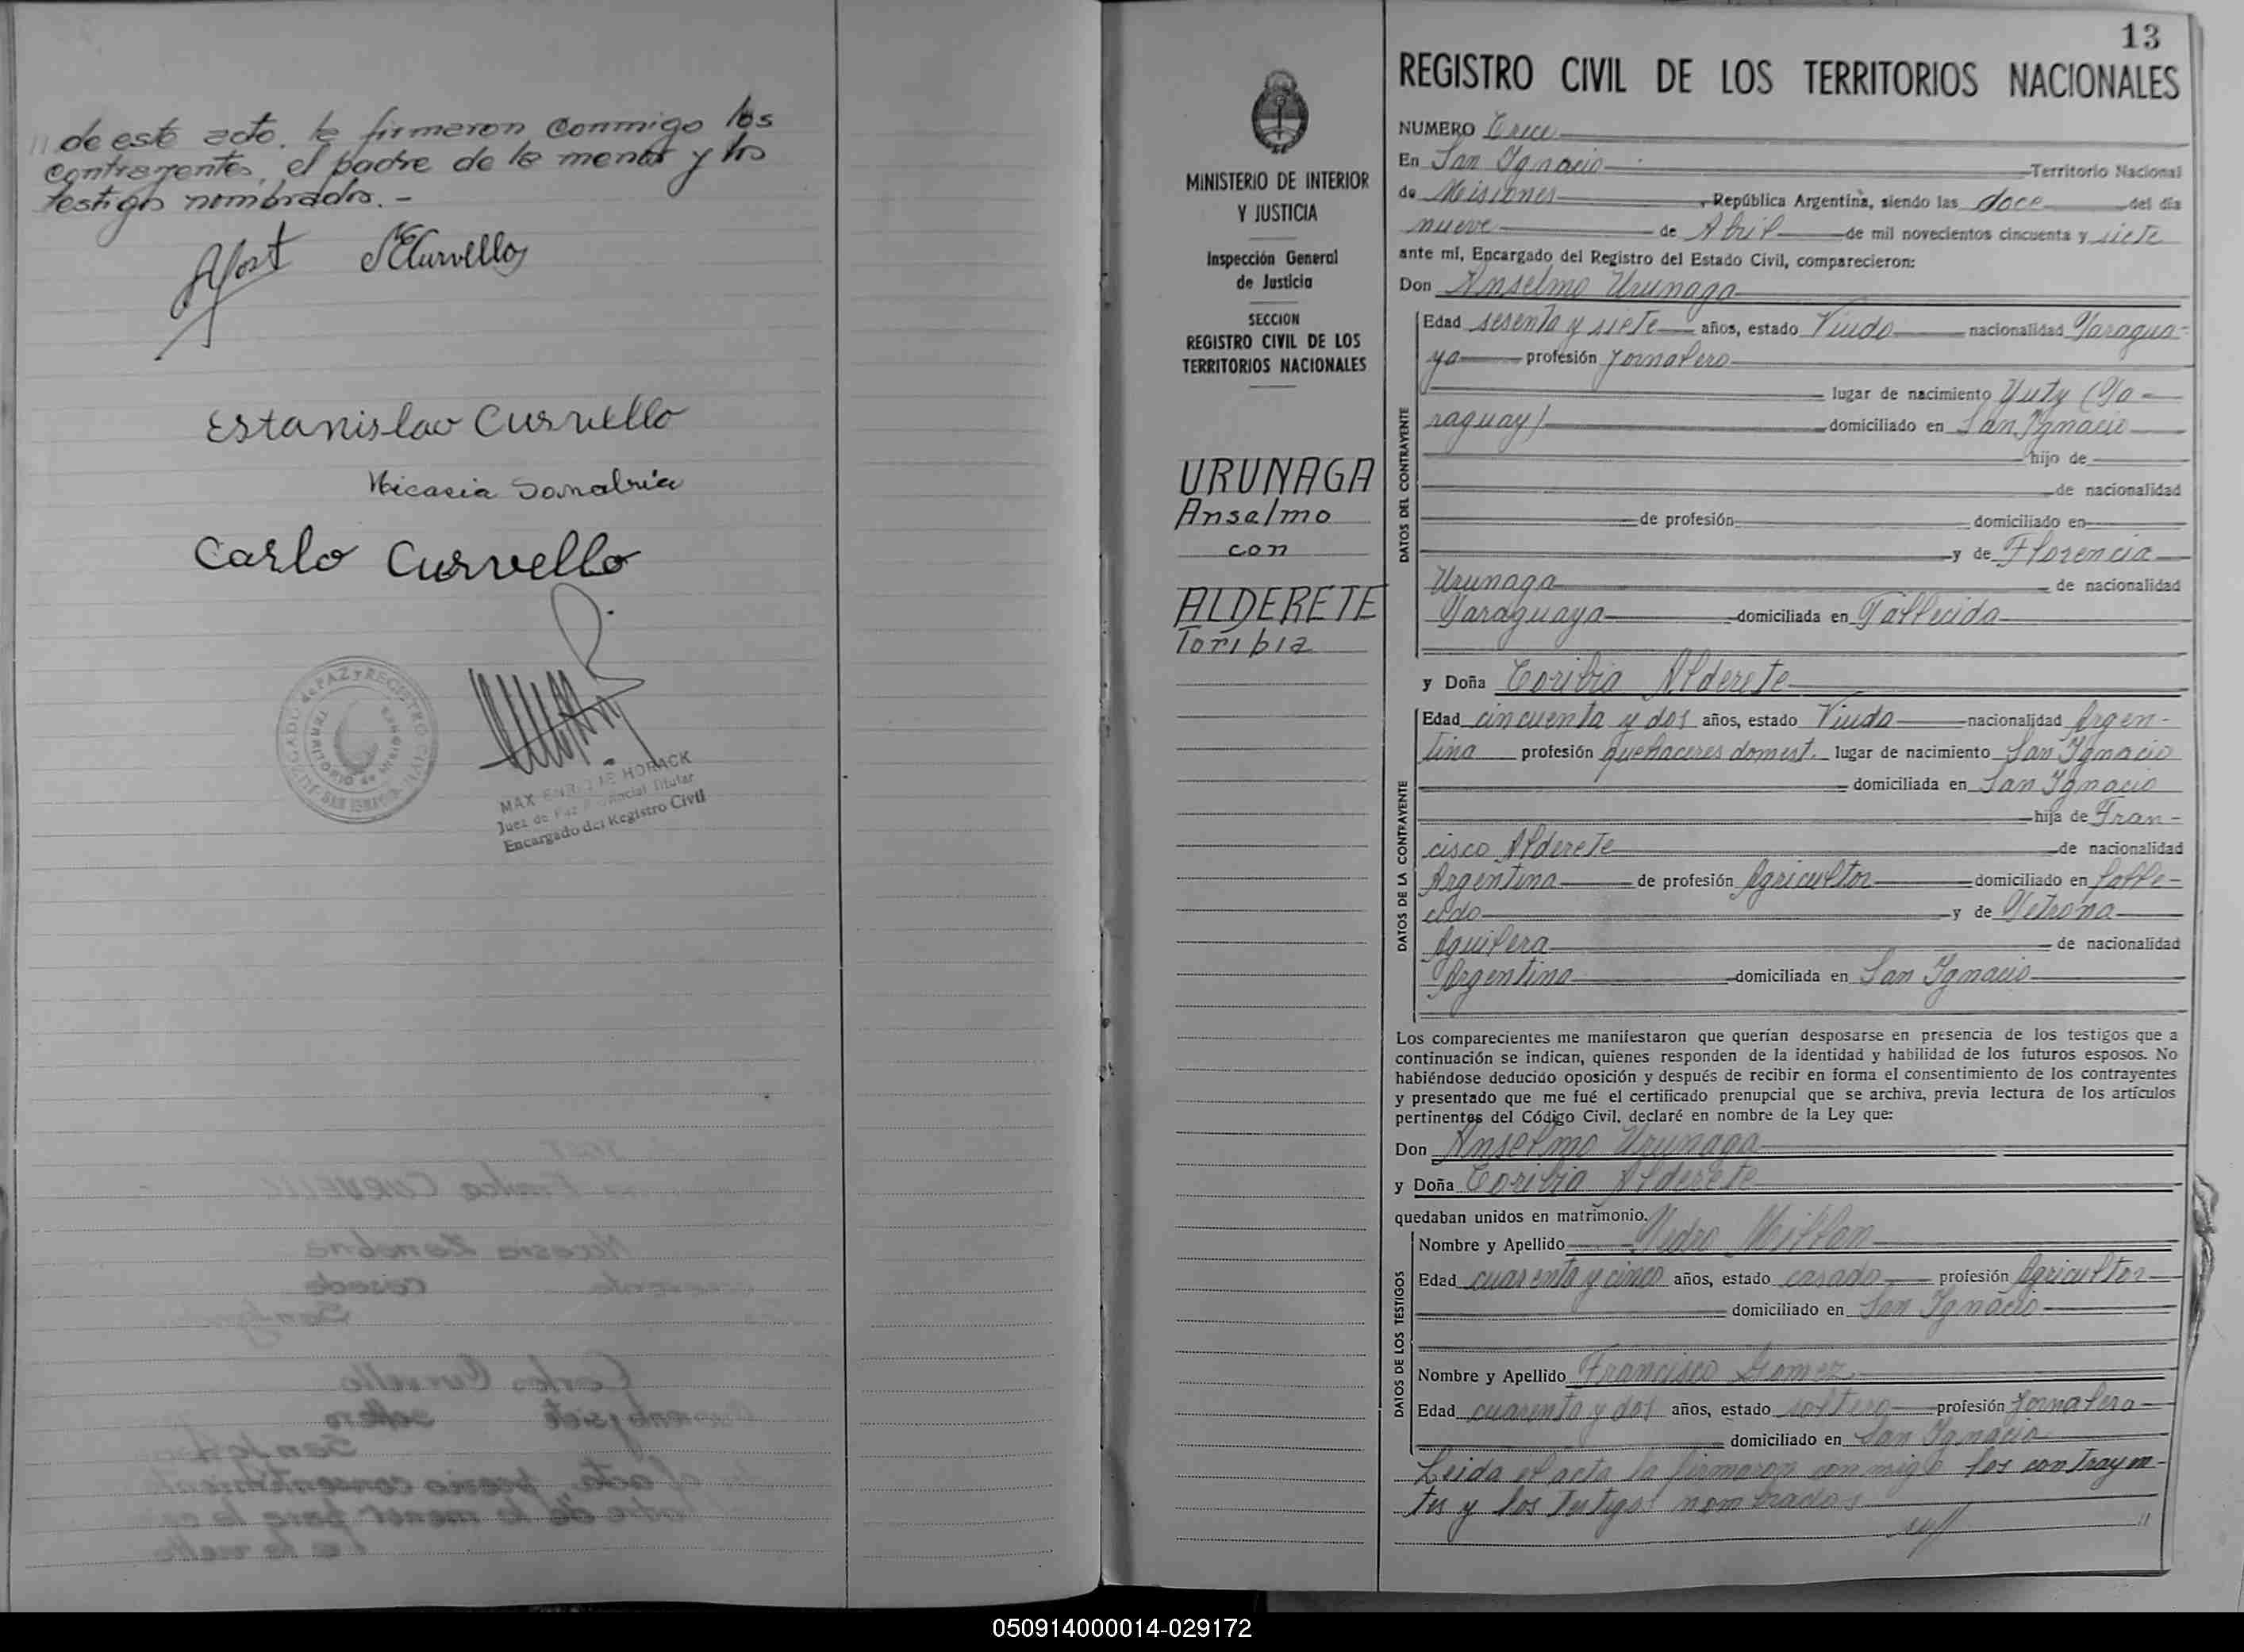 de este acto. la firmaron conmigo los
contrayentes, el padre de la menor y los
testigos nombrados. -
Curvello
Estanislao Curvello
Nicasia Sanabria
Carlo Curvello
JUZGADO de PAZ Y REGISTRO CIVIL
TERRITORIO de MISIONES
SAN IGNACIO
MAX ENRIQUE HORACK
Juez de Paz Titular
Encargado del Registro Civil
13
REGISTRO CIVIL DE LOS TERRITORIOS NACIONALES
MINISTERIO DE INTERIOR
Y JUSTICIA
Inspección General
de Justicia
SECCION
REGISTRO CIVIL DE LOS
TERRITORIOS NACIONALES
URUNAGA
Anselmo
con
ALDERETE
Toribia
NUMERO Trece
En San Ignacio Territorio Nacional
de Misiones, República Argentina, siendo las doce del día
nueve de Abril de mil novecientos cincuenta y siete
ante mí, Encargado del Registro del Estado Civil, comparecieron:
Don Anselmo Urunaga
DATOS DEL CONTRAYENTE
Edad sesenta y siete años, estado Viudo nacionalidad Paragua-
ya profesión Jornalero
lugar de nacimiento Yuty (Pa-
raguay) domiciliado en San Ignacio
hijo de
de nacionalidad
de profesión domiciliado en
y de Florencia
Urunaga de nacionalidad
Paraguaya domiciliada en Fallecida
y Doña Toribia Alderete
DATOS DE LA CONTRAYENTE
Edad cincuenta y dos años, estado Viuda nacionalidad Argen-
tina profesión quehaceres domest. lugar de nacimiento San Ignacio
domiciliada en San Ignacio
hija de Fran-
cisco Alderete de nacionalidad
Argentina de profesión Agricultor domiciliado en falle-
cido y de Petrona
Aguilera de nacionalidad
Argentina domiciliada en San Ignacio
Los comparecientes me manifestaron que querían desposarse en presencia de los testigos que a
continuación se indican, quienes responden de la identidad y habilidad de los futuros esposos. No
habiéndose deducido oposición y después de recibir en forma el consentimiento de los contrayentes
y presentado que me fué el certificado prenupcial que se archiva, previa lectura de los artículos
pertinentes del Código Civil, declaré en nombre de la Ley que:
Don Anselmo Urunaga
y Doña Toribia Alderete
quedaban unidos en matrimonio.
DATOS DE LOS TESTIGOS
Nombre y Apellido Pedro Millan
Edad cuarenta y cinco años, estado casado profesión Agricultor
domiciliado en San Ignacio
Nombre y Apellido Francisco Gomez
Edad cuarenta y dos años, estado soltero profesión Jornalero
domiciliado en San Ignacio
Leida el acta la firmaron conmigo los contrayen-
tes y los testigos nombrados
050914000014-029172